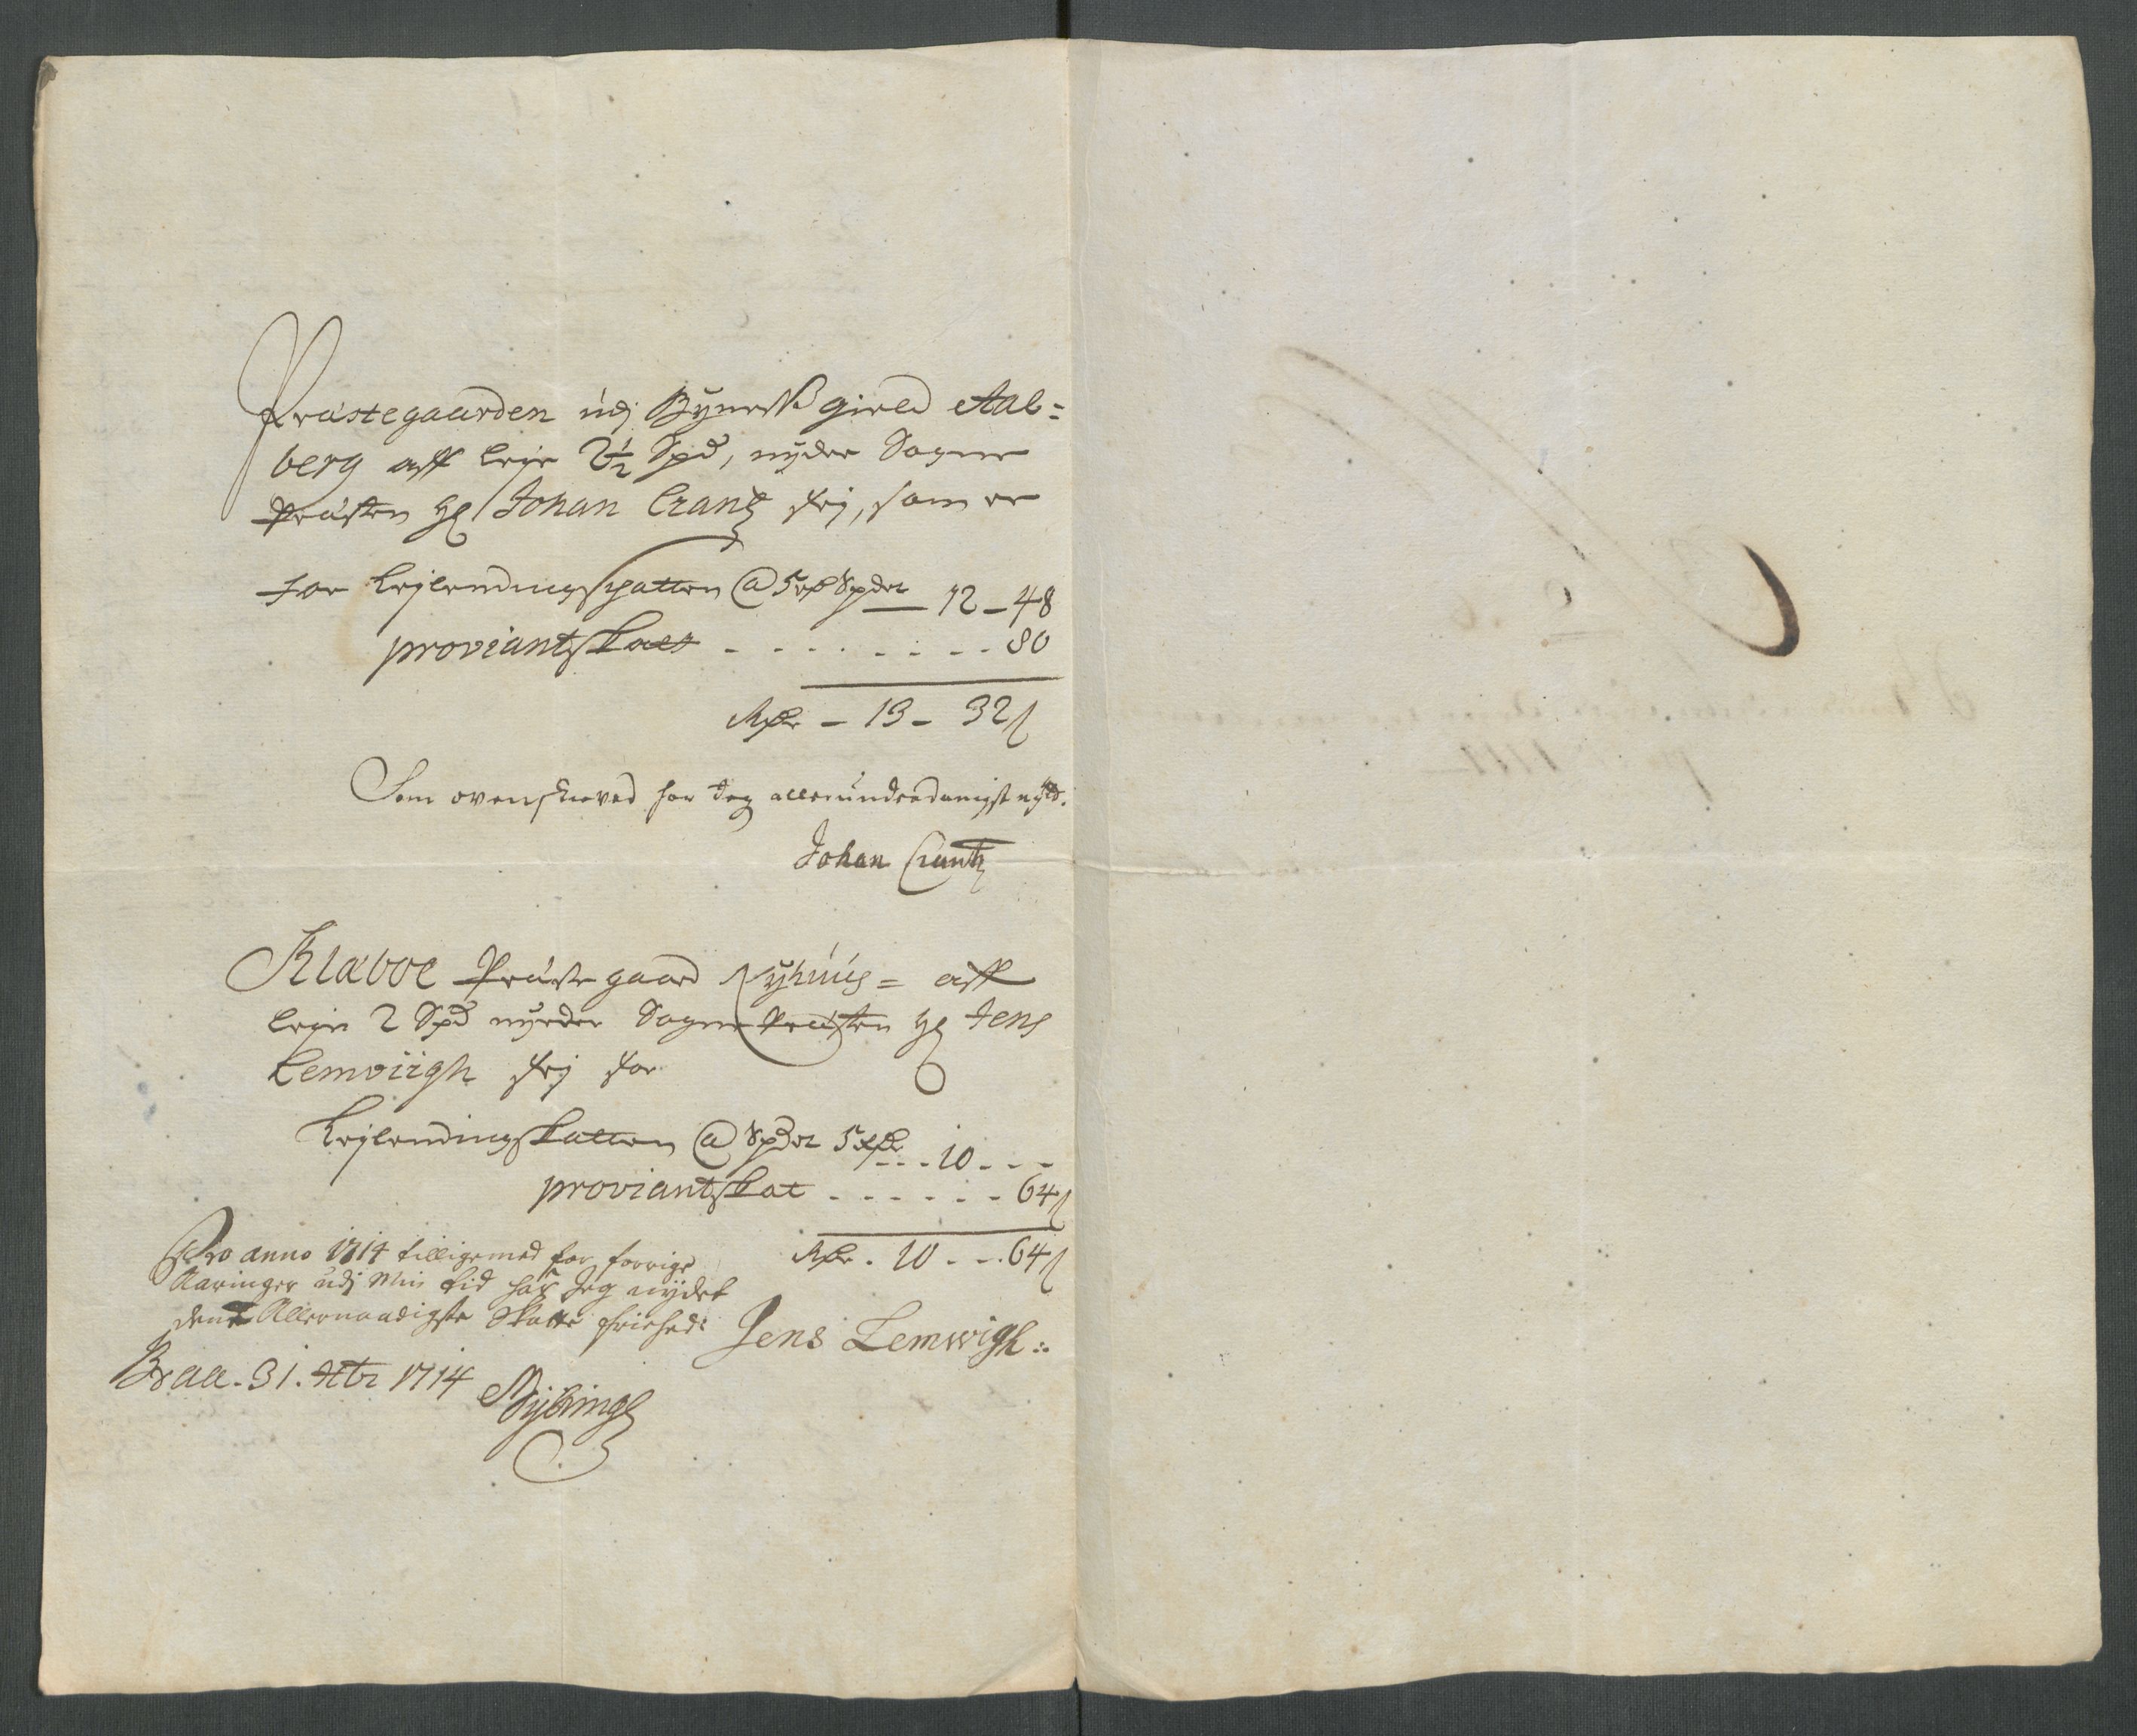 Præstegaarden udj Bynesß gield Aal=
berg aff leje 2½ Spd, nyder Sogne
Præsten Hr Johan Crantz frj, som er
for Lejlendingschatten @ 5 rdr Spdet — 12 – 48
proviantskatt - - - - - - - - 80
Rdr – 13 – 32 ß
Som ovenskreved har Jeg allerunderdanigst nydt.
Johan Crantz
Klæboe Præstegaard Nyhuus = aff
leje 2 Spd nyder Sogne Præsten Hr Jens
Lemviigh frj for
Lejlendingskatten @ Spdet 5 rdr - - - 10 - - -
proviantskat - - - - - - 64 ß
Rdr . 10 - - . 64 ß
Pro anno 1714 tilligemed for forrige
Aaringer udj Min tid har Jeg nydet
denne Allernaadigste Skatte friehed:
Jens Lemwigh :.
Bräll . 31. Xbr 1714